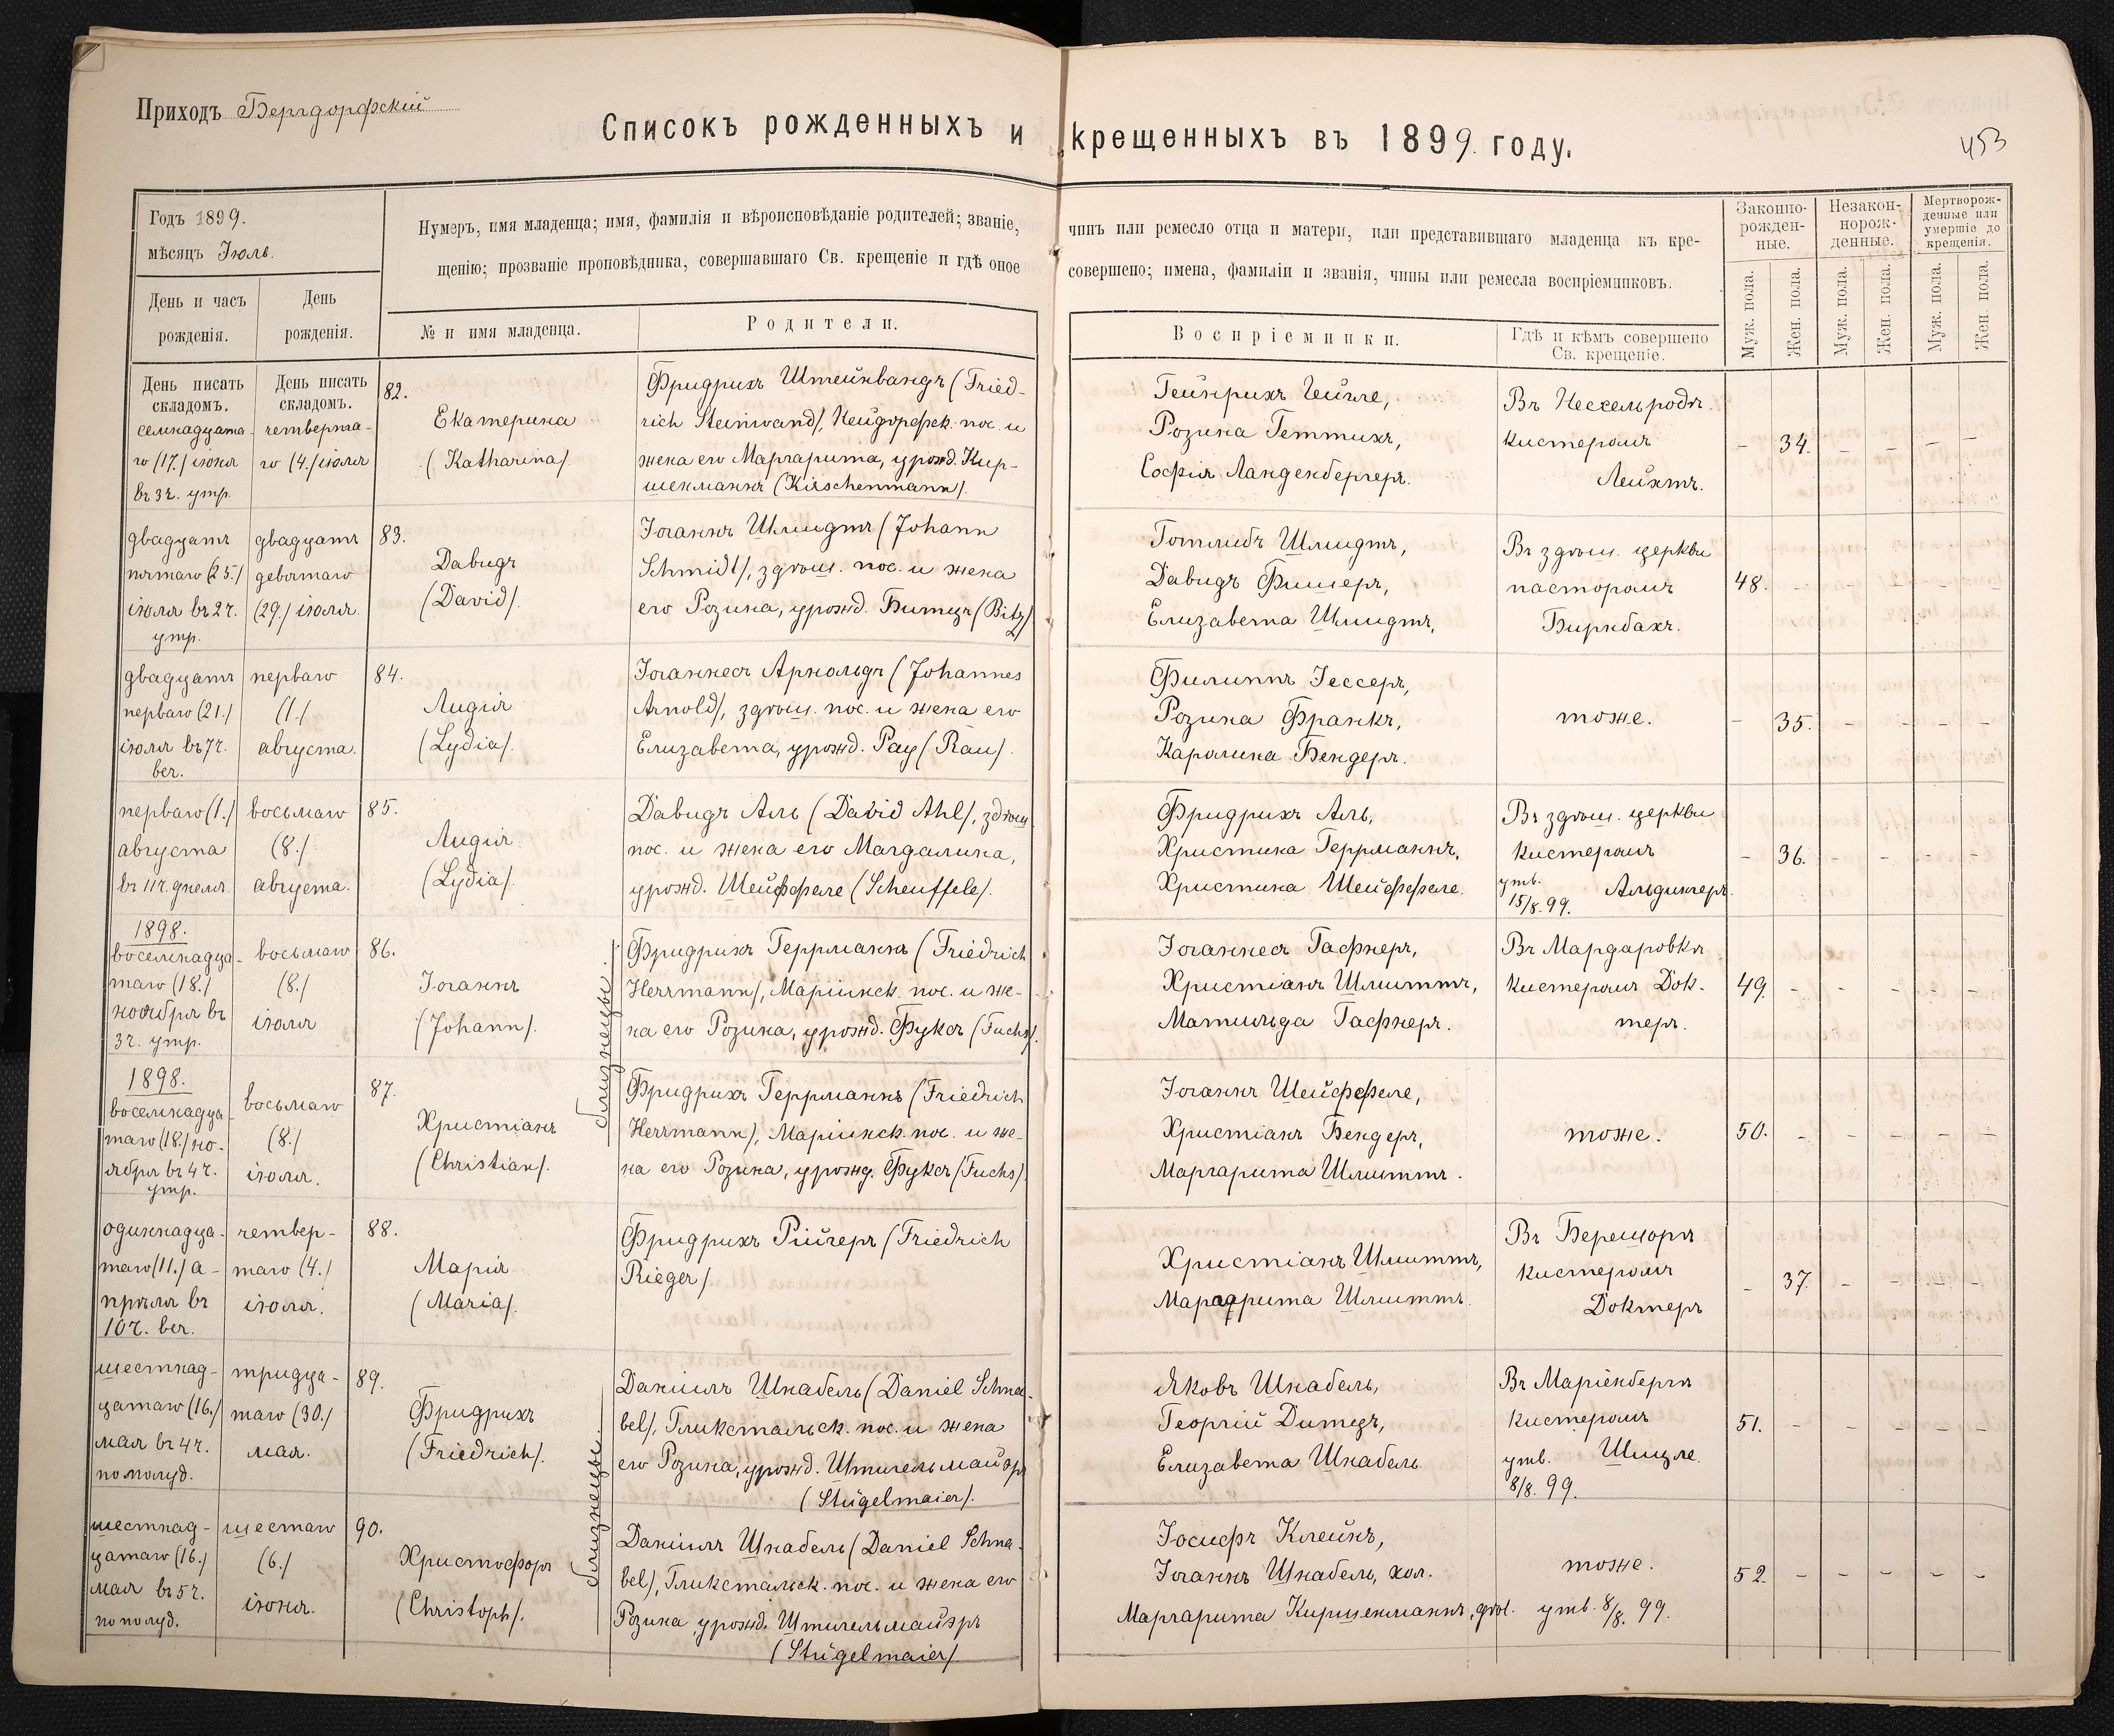 Приходъ Бергдорфскій
Списокъ рожденныхъ и крещенныхъ въ 1899 году.
453
Годъ 1899.
мѣсяцъ Іюль.
День и часъ
рожденія.
День
рожденія.
Нумеръ, имя младенца; имя, фамилія и вѣроисповѣданіе родителей; званіе,
щенію; прозваніе проповѣдника, совершавшаго Св. крещеніе и гдѣ оное
№ и имя младенца.
Родители.
чинъ или ремесло отца и матери, или представившаго младенца къ кре-
совершено; имена, фамиліи и званія, чины или ремесла воспріемниковъ.
Воспріемники.
Гдѣ и кѣмъ совершено
Св. крещеніе.
Законно-
рожден-
ные.
Незакон-
норож-
денные.
Мертворож-
денные или
умершіе до
крещенія.
Муж. пола.
Жен. пола.
Муж. пола.
Жен. пола.
Муж. пола.
Жен. пола.
День писать
складомъ.
семнадцата-
го (17.) іюня
въ 3 ч. утр.
День писать
складомъ.
четверта-
го (4.) іюля
82.
Екатерина
(Katharina).
Фридрихъ Штейнвандъ (Fried-
rich Steinwand), Нейдорфск. пос. и
жена его Маргарита, урожд. Кир-
шенманнъ (Kirschenmann).
Гейнрихъ Гейгле,
Розина Геттихъ,
Софія Ланденбергеръ.
Въ Нессельроде
кистеромъ
Лейхтъ.
- 34. - - - -
двадцать
пятаго (25.)
іюля въ 2 ч.
утр.
двадцать
девятаго
(29.) іюля.
83.
Давидъ
(David).
Іоганнъ Шмидтъ (Johann
Schmidt), здѣш. пос. и жена
его Розина, урожд. Битцъ (Bitz)
Готлибъ Шмидтъ,
Давидъ Фишеръ,
Елизавета Шмидтъ,
Въ здѣш. церкви
пасторомъ
Бирнбахъ.
48. - - - - -
двадцать
перваго (21.)
іюля въ 7 ч.
веч.
перваго
(1.)
августа.
84.
Лидія
(Lydia).
Іоганнесъ Арнольдъ (Johannes
Arnold), здѣш. пос. и жена его
Елизавета, урожд. Рау (Rau).
Филиппъ Гессеръ,
Розина Франкъ,
Каролина Бендеръ.
тоже.
- 35. - - - -
перваго (1.)
августа
въ 11 ч. днемъ.
восьмаго
(8.)
августа.
85.
Лидія
(Lydia).
Давидъ Аль (David Ahl), здѣш.
пос. и жена его Магдалина,
урожд. Шейффеле (Scheuffele).
Фридрихъ Аль,
Христина Геррманнъ,
Христина Шейффеле.
Въ здѣш. церкви
кистеромъ
утв. Альдингеръ.
15/8. 99.
- 36. - - - -
1898.
восемнадца-
таго (18.)
ноября въ
3 ч. утр.
восьмаго
(8.)
іюля
86.
Іоганнъ
(Johann).
близнецы.
Фридрихъ Геррманнъ (Friedrich
Herrmann), Маріинск. пос. и же-
на его Розина, урожд. Фуксъ (Fuchs).
Іоганнесъ Гафнеръ,
Христіанъ Шлиттъ,
Матильда Гафнеръ.
Въ Мардаровкѣ
кистеромъ Док-
теръ.
49. - - - - -
1898.
восемнадца-
таго (18.) но-
ября въ 4 ч.
утр.
восьмаго
(8.)
іюля.
87.
Христіанъ
(Christian).
Фридрихъ Геррманнъ (Friedrich
Herrmann), Маріинск. пос. и же-
на его Розина, урожд. Фуксъ (Fuchs).
Іоганнъ Шейффеле,
Христіанъ Бендеръ,
Маргарита Шлиттъ.
тоже.
50. - - - - -
одиннадца-
таго (11.) а-
прѣля въ
10 ч. веч.
четвер-
таго (4.)
іюля.
88.
Марія
(Maria).
Фридрихъ Рійгеръ (Friedrich
Rieger)
Христіанъ Шлиттъ,
Маргарита Шлиттъ.
Въ Берешорѣ
кистеромъ
Доктеръ
- 37. - - - -
шестнад-
цатаго (16.)
мая въ 4 ч.
по полуд.
тридца-
таго (30.)
мая.
89.
Фридрихъ
(Friedrich).
близнецы.
Даніилъ Шнабель (Daniel Schna-
bel), Глюкстальск. пос. и жена
его Розина, урожд. Штигельмайэръ
(Stügelmaier).
Яковъ Шнабель,
Георгій Дитцъ,
Елизавета Шнабель
Въ Маріенбергѣ
кистеромъ
утв. Шицле.
8/8. 99.
51. - - - - -
шестнад-
цатаго (16.)
мая въ 5 ч.
по полуд.
шестаго
(6.)
іюня.
90.
Христофоръ
(Christoph).
Даніилъ Шнабель (Daniel Schna-
bel), Глюкстальск. пос. и жена его
Розина, урожд. Штигельмайэръ
(Stügelmaier).
Іосифъ Клейнъ,
Іоганнъ Шнабель, хол.
Маргарита Киршенманнъ, дѣв.
тоже.
утв. 8/8. 99.
52. - - - - -